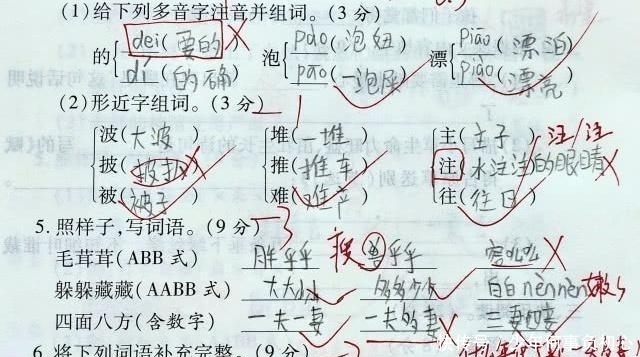 (1)给下列多音字注音并组词。(3 分)
的{ dei(要的) 泡{ pāo(泡纽) 漂{ piāo(漂泊)
dí(的确) pào(一泡尿) piào(漂亮)
(2)形近字组词。(3 分) -1
波(大波) 堆(一堆) 主(主子) 注/注
披(披扒) 推(推车) 注(水注注的眼睛)
被(被子) 难(难产) 往(往日)
5.照样子,写词语。(9 分) -3
毛茸茸(ABB 式) 胖乎乎 瘦 兽乎乎
躲躲藏藏(AABB 式) 大大小小 多多少少 白白nènnèn 嫩
四面八方(含数字) 一夫一妻 一夫多妻 三妻四妾
6.将下列词语补充完整。(9 分)